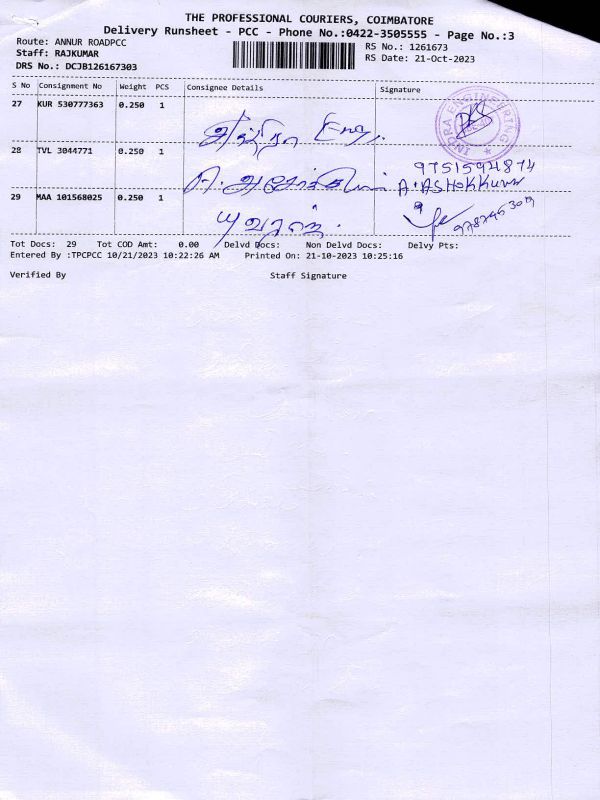 THE PROFESSIONAL COURIERS, COIMBATORE
Delivery Runsheet - PCC - Phone No.:0422-3505555 - Page No.:3
Route: ANNUR ROADPCC
RS No.: 1261673
Staff: RAJKUMAR
RS Date: 21-Oct-2023
DRS No.: DCJB126167303
S No Consignment No Weight PCS Consignee Details Signature
27 KUR 530777363 0.250 1
இந்திரா Eng.
INDRA ENGINEERING
28 TVL 3044771 0.250 1
9751594874
A. அசோக்குமார் A. ASHOKKUMAR
29 MAA 101568025 0.250 1
யுவராஜ்
Tot Docs: 29 Tot COD Amt: 0.00 Delvd Docs: Non Delvd Docs: Delvy Pts:
Entered By :TPCPCC 10/21/2023 10:22:26 AM Printed On: 21-10-2023 10:25:16
Verified By Staff Signature